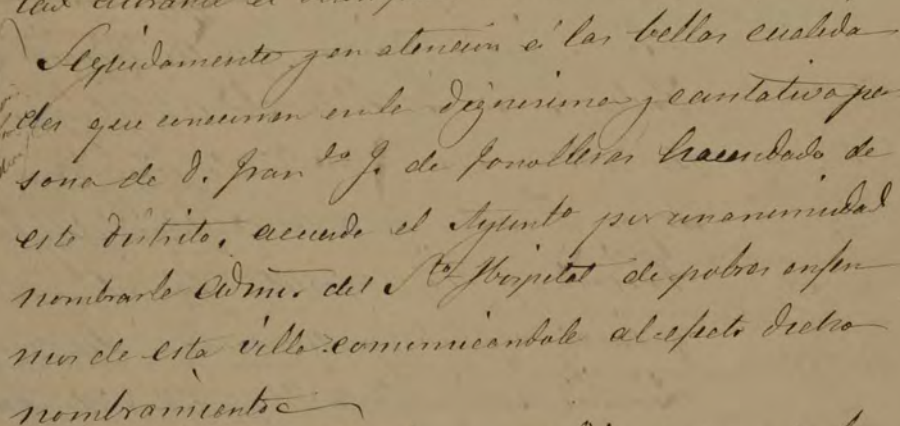 Seguidamente y en atencion á las bellas cualida
des que concurren en la dignisima y caritativa per
sona de D. Fran.co J. de Fonolleras hacendado de
este distrito, acuerda el Ayunto por unanimidad
nombrarle Admor. del Sto Hospital de pobres enfer
mos de esta villa comunicandole al efecto dicho
nombramiento